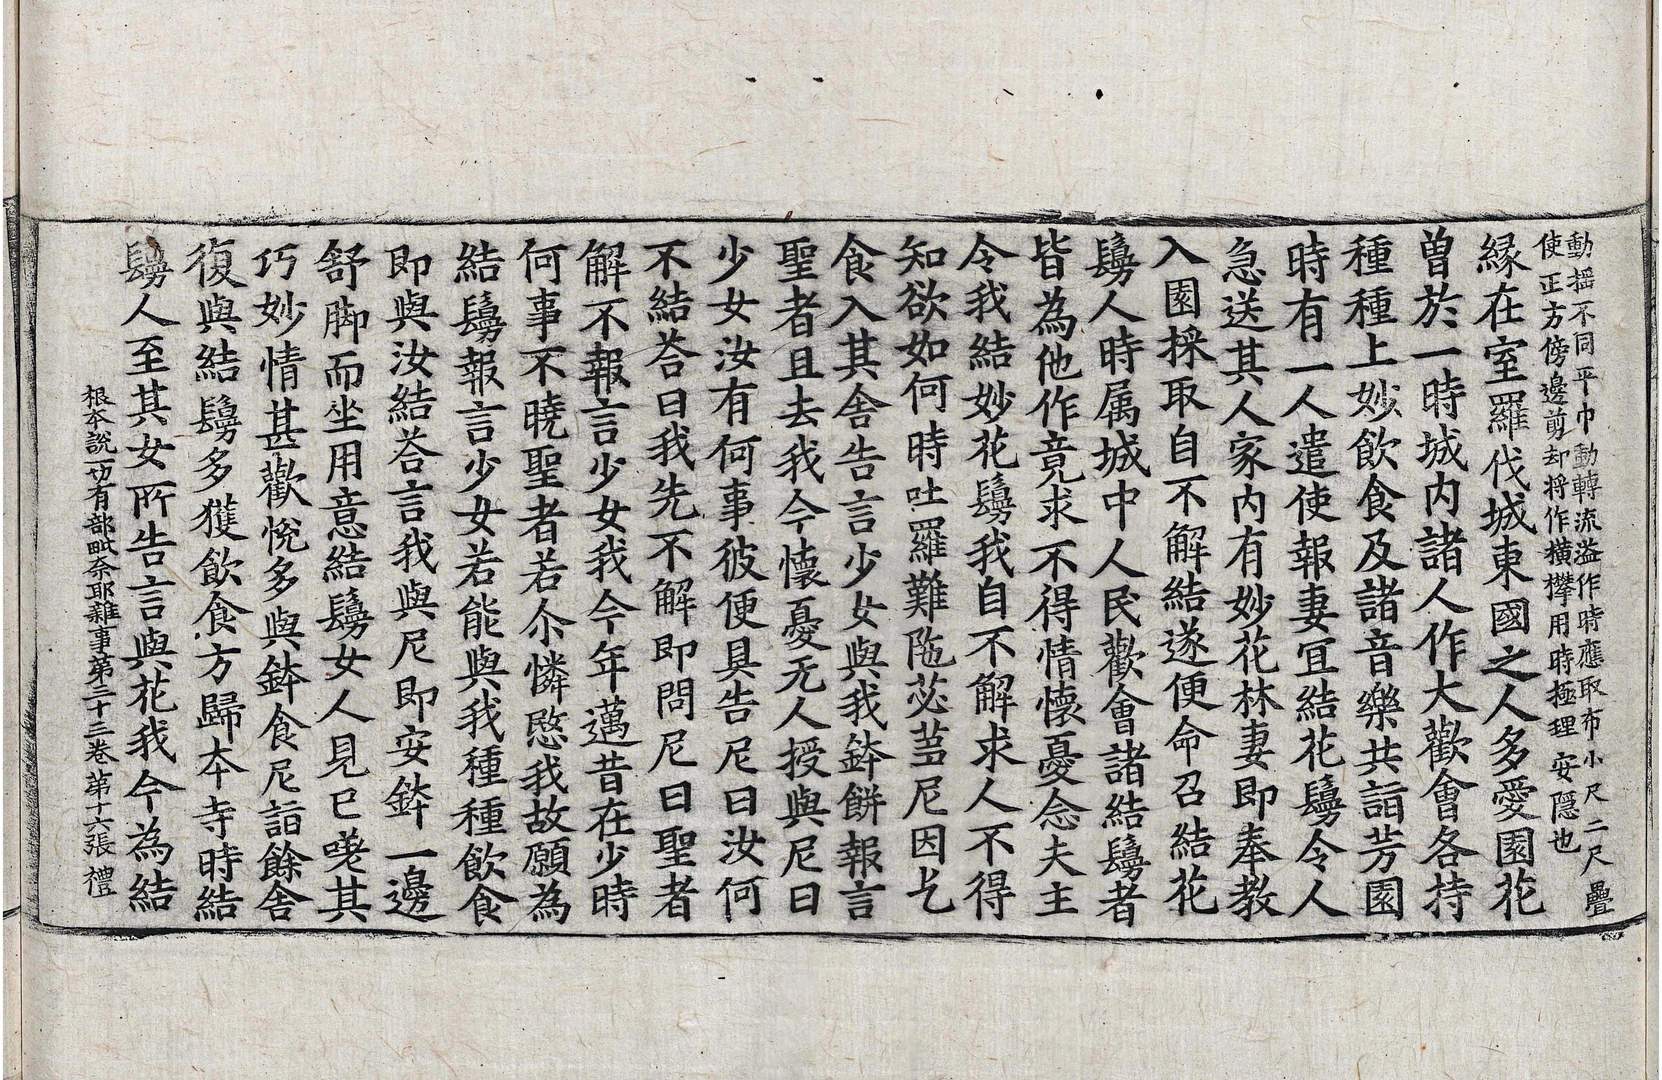 動揺不同平巾動轉流溢作時應取布小尺二尺疊
使正方傍邊剪却将作橫攀用時極理安隱也
縁在室羅伐城東國之人多愛園花
曽於一時城内諸人作大歡會各持
種種上妙飲食及諸音樂共詣芳園
時有一人遣使報妻冝結花鬘令人
急送其人家内有妙花林妻即奉教
入園採取自不解結遂便命召結花
鬘人時属城中人民歡會諸結鬘者
皆為他作竟求不得情懷憂念夫主
令我結妙花鬘我自不解求人不得
知欲如何時吐羅難陁苾芻尼因乞
食入其舍告言少女與我鉢餅報言
聖者且去我今懷憂无人授與尼曰
少女汝有何事彼便具告尼曰汝何
不結荅曰我先不解即問尼曰聖者
解不報言少女我今年邁昔在少時
何事不曉聖者若尒憐愍我故願為
結鬘報言少女若能與我種種飲食
即與汝結荅言我與尼即安鉢一邊
舒脚而坐用意結鬘女人見已嘆其
巧妙情甚歡悅多與鉢食尼詣餘舍
復與結鬘多獲飲食方歸本寺時結
鬘人至其女所告言與花我今為結
根本說一切有部毗奈耶雜事第三十三卷第十六張禮